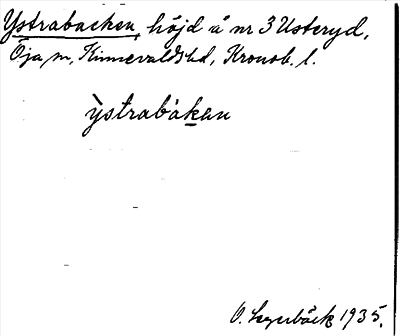 Ystrabacken, höjd å nr 3 Usteryd,
Öja sn, Kinnevalds hd, Kronob. l.
ỳstrabákan
O. 1935.